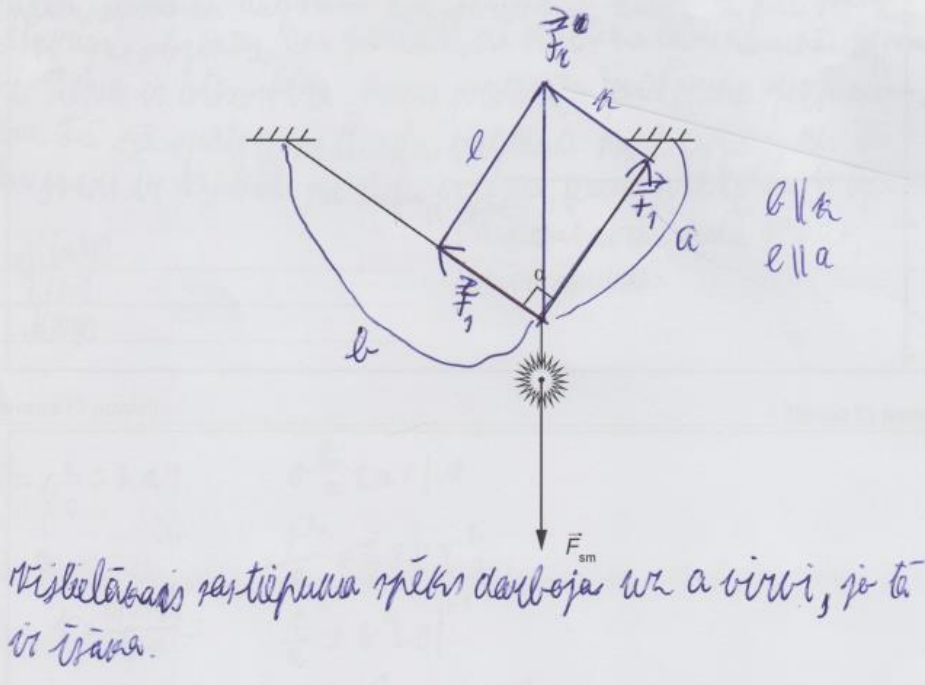 F₂
n
l
F₁
a
b ∥ n
l ∥ a
α
F₁
b
F⃗ sm
Vislielākais sastiepuma spēks darbojas uz a virvi, jo tā
ir īsāka.